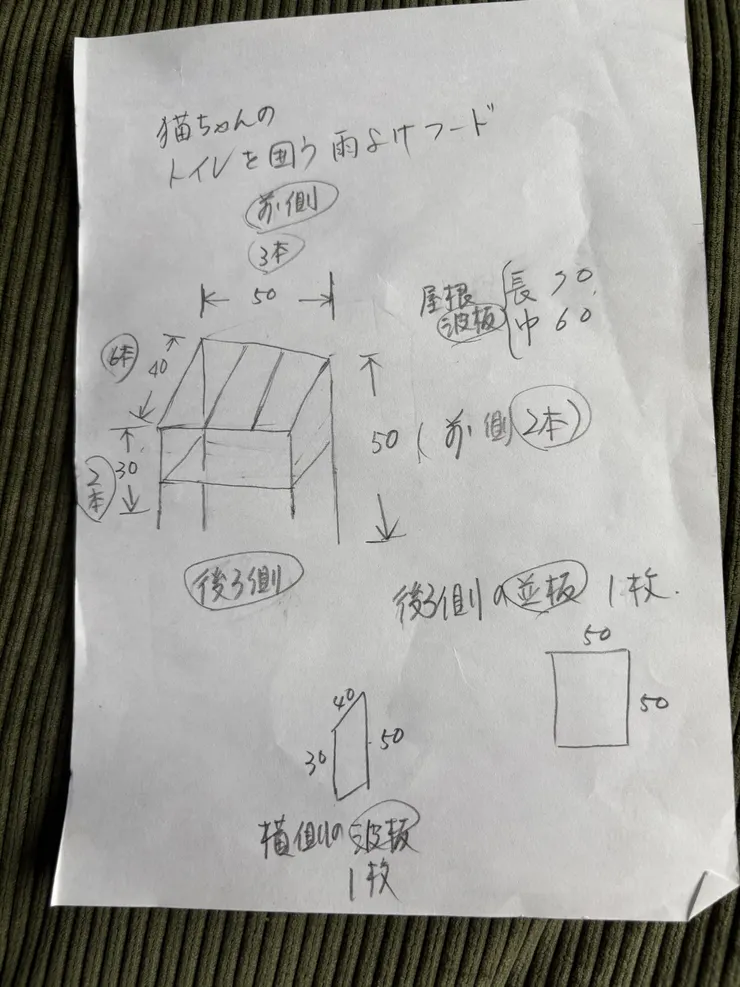 猫ちゃんの
トイレを囲う雨よけフード
前側
3本
50
屋根 長 70
波板 巾 60
6本
40
30
2本
50 (前側2本)
後ろ側
後ろ側の並板 1枚.
50
50
40
30
50
横側の波板
1枚